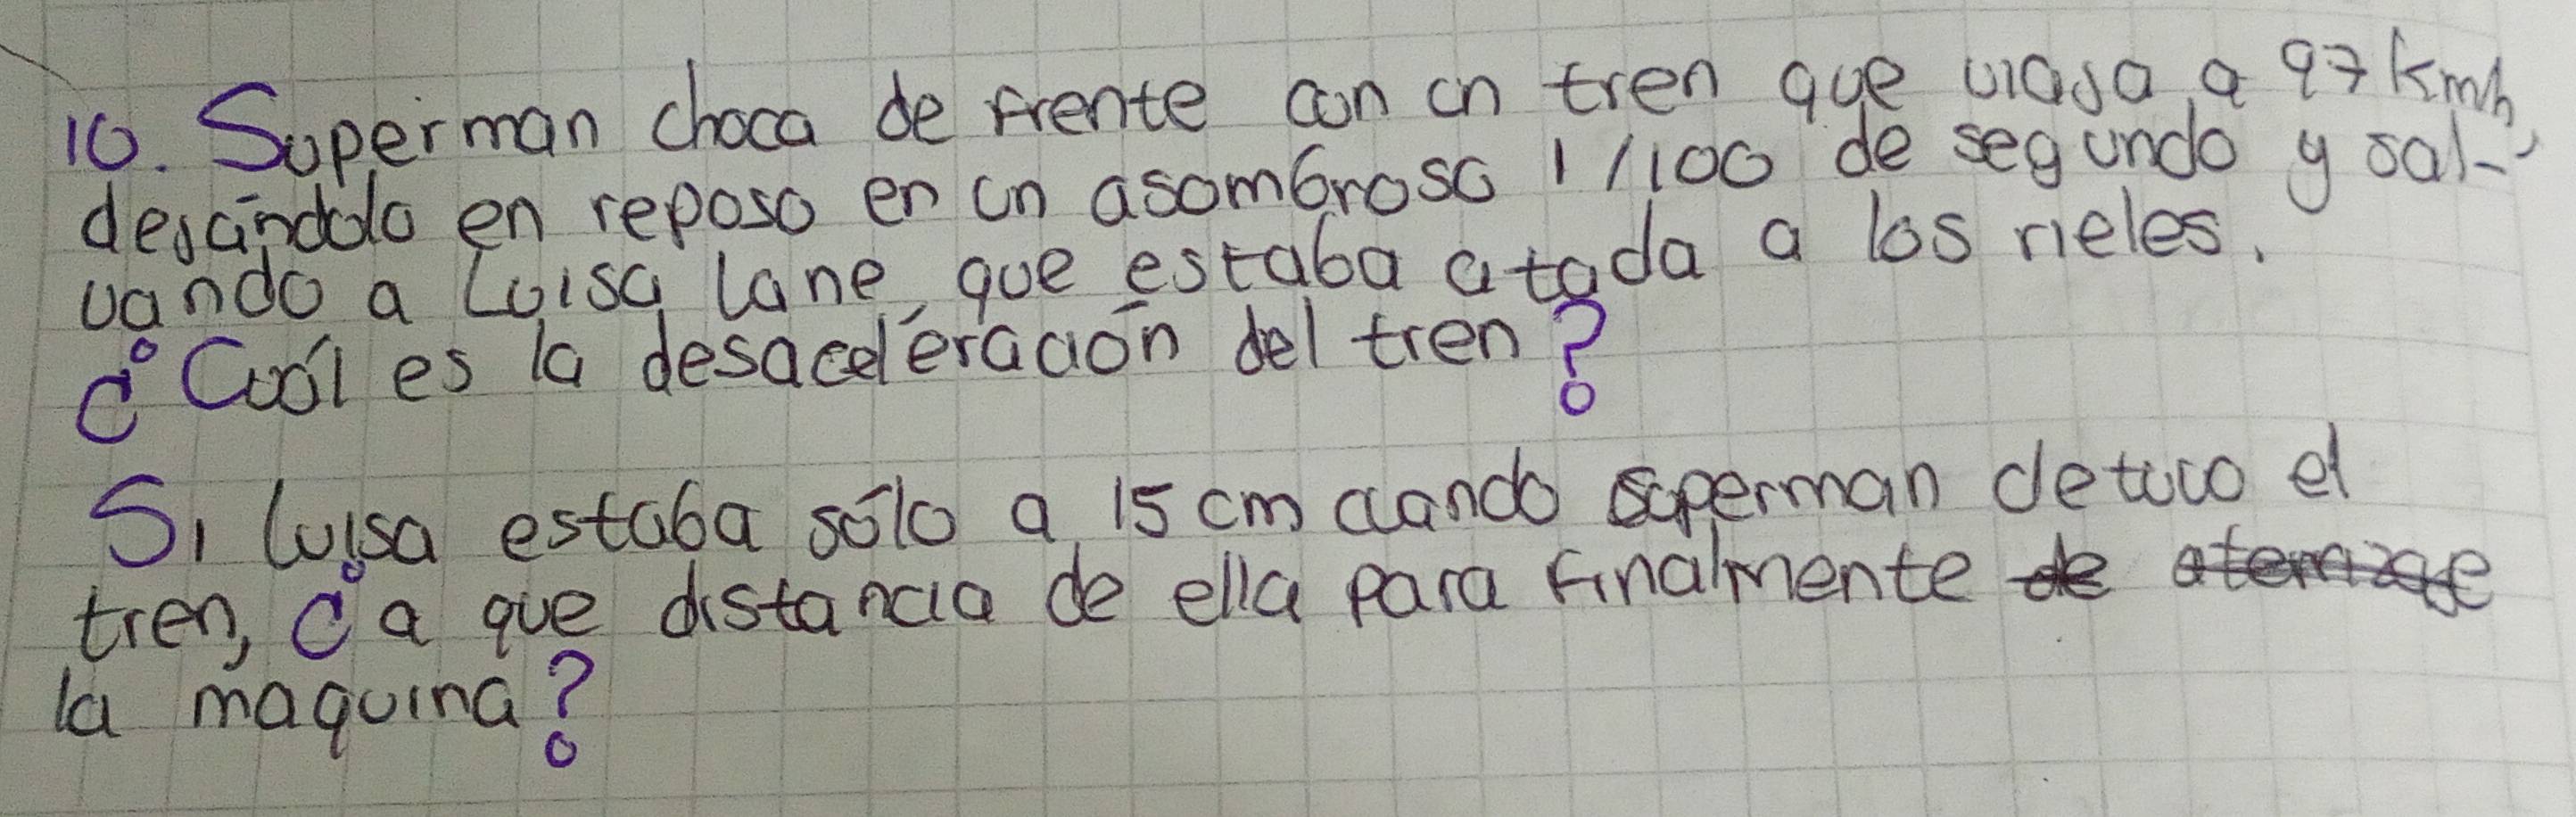 10. Superman choca de frente con un tren que viaja a 97 km/h,
dejándolo en reposo en un asombroso 1/100 de segundo y sal-
vando a Luisa Lane, que estaba atada a los rieles.
¿Cuál es la desaceleración del tren?
Si luisa estaba sólo a 15 cm cuando superman detuvo el
tren, ¿a que distancia de ella para finalmente de aterrizae
la maquina?